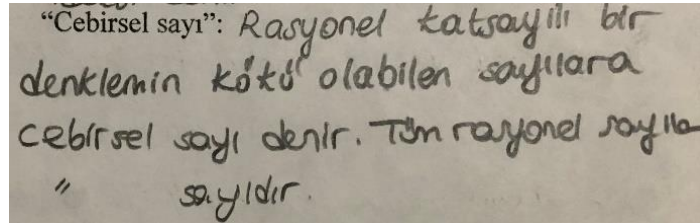 “Cebirsel sayı”: Rasyonel katsayılı bir
denklemin kökü olabilen sayılara
cebirsel sayı denir. Tüm rasyonel sayıla
" sayıdır.